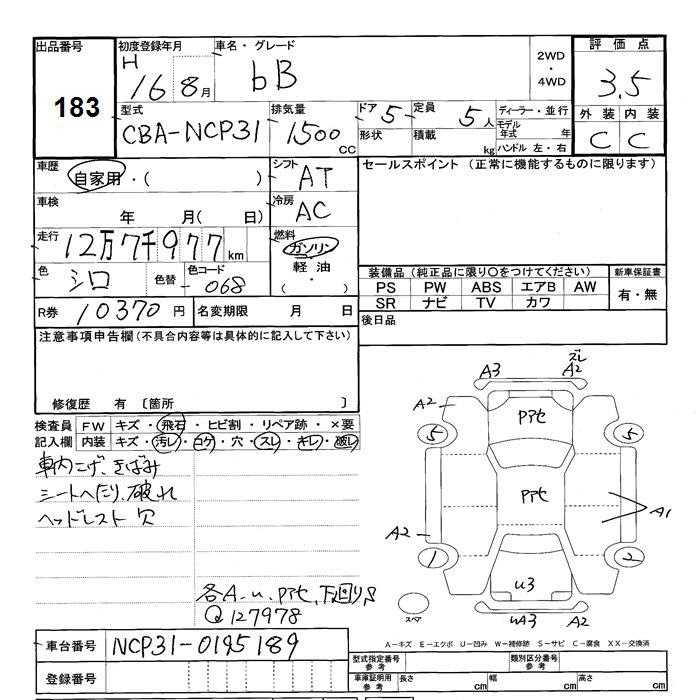 出品番号
183
初度登録年月
H 16 8月
車名・グレード
bB
2WD
・
4WD
評価点
3.5
型式
CBA-NCP31
排気量
1500 CC
ドア 5
定員 5人
ディーラー・並行
形状
積載 kg
モデル年式 年
ハンドル 左・右
外装 内装
C C
車歴
自家用・( )
シフト
AT
セールスポイント (正常に機能するものに限ります)
車検
年 月( 日)
冷房
AC
走行
12万7千977km
燃料
ガソリン
軽油
( ・ )
色
シロ
色替
色コード
068
装備品 (純正品に限り○をつけてください)
新車保証書
PS PW ABS エアB AW
SR ナビ TV カワ
有・無
R券 10370円
名変期限 月 日
後日品
注意事項申告欄(不具合内容等は具体的に記入して下さい)
修復歴 有 〔箇所 〕
検査員 FW キズ・飛石・ヒビ割・リペア跡・×要
記入欄 内装 キズ・汚レ・コゲ・穴・スレ・キレ・破レ
車内こげ、きばみ
シートへたり、破れ
ヘッドレスト穴
各A-u、Pアセ、下回りS
Q127978
A3
ズレ
A2
A2
Pアセ
5
5
Pアセ
A1
A2
1
2
u3
スペア
uA3
A2
車台番号 NCP31-0195189
登録番号
A－キズ E－エクボ U－凹み W－補修跡 S－サビ C－腐食 XX－交換済
型式指定番号 参考
類別区分番号 参考
車庫証明用 参考
長さ cm
幅 cm
高さ cm